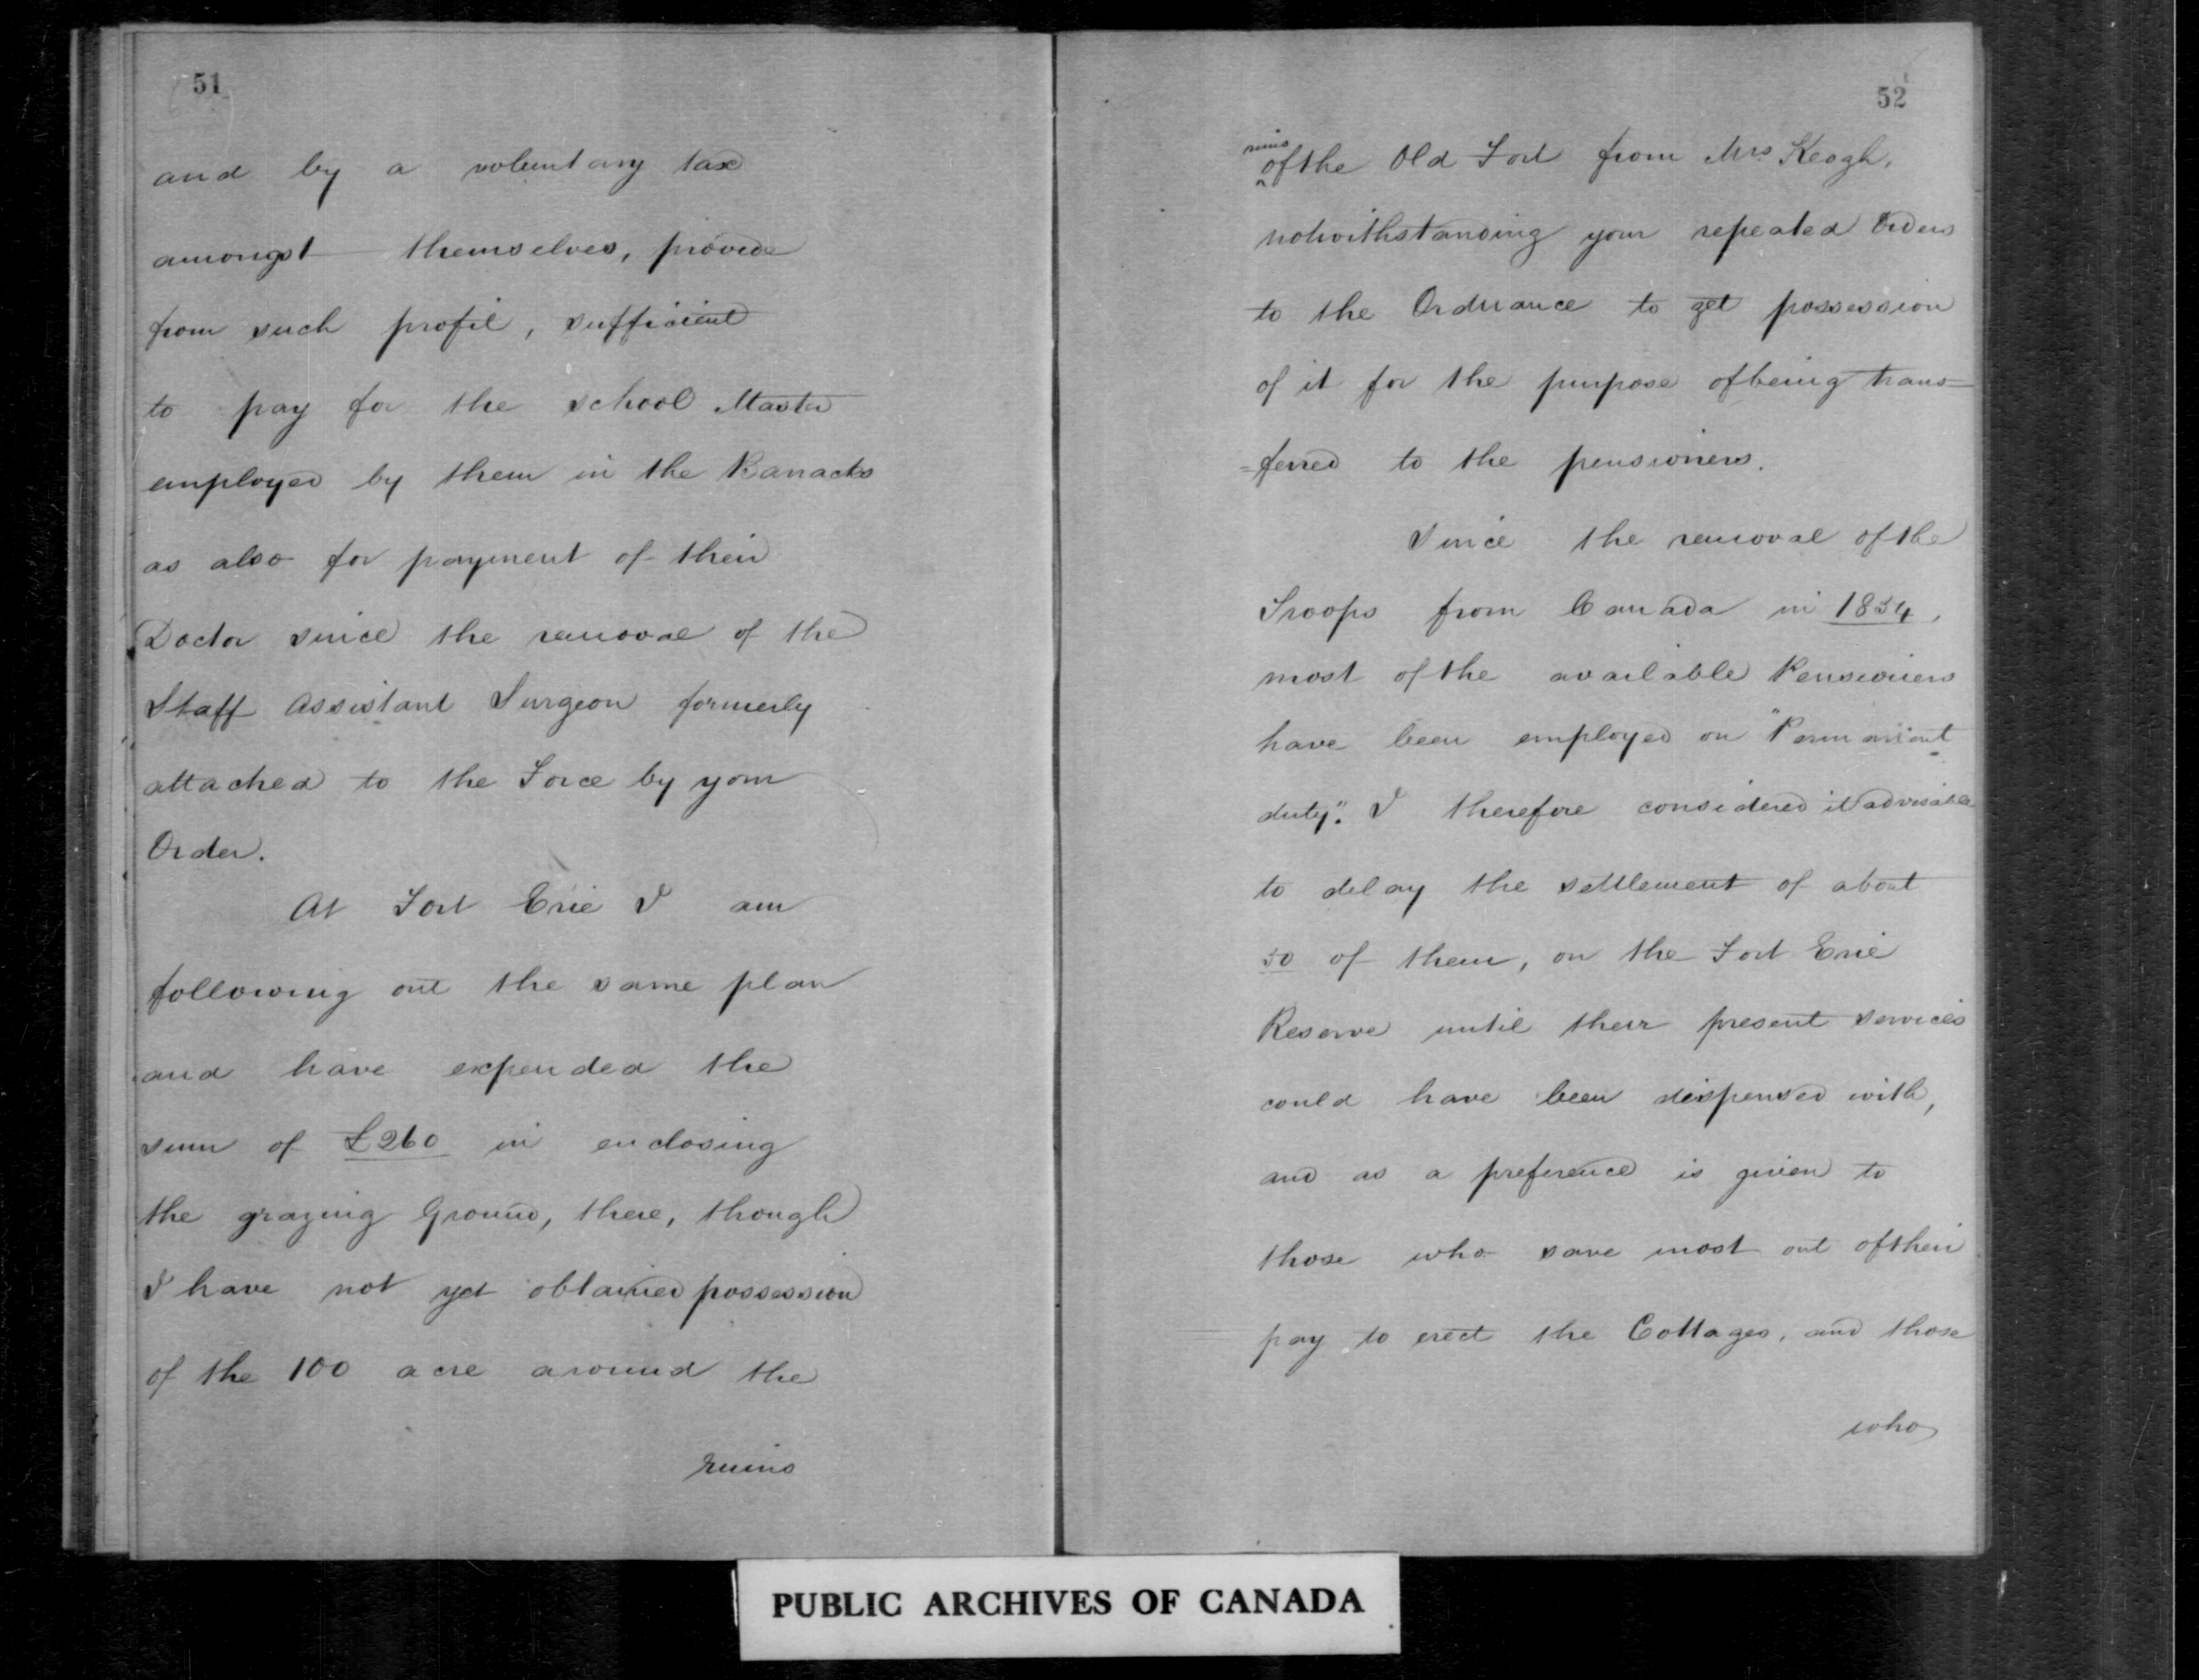 51
and by a voluntary tax
amongst themselves, provide
from such profit, sufficient
to pay for the school Master
employed by them in the Barracks
as also for payment of their
Doctor since the removal of the
Staff Assistant Surgeon formerly
attached to the Force by your
Order.
At Fort Erie I am
following out the same plan
and have expended the
sum of £260 in enclosing
the grazing Ground, there, though
I have not yet obtained possession
of the 100 acre around the
ruins
52
ruins
of the Old Fort from Mrs Keogh,
notwithstanding your repeated Orders
to the Ordnance to get possession
of it for the purpose of being trans-
=ferred to the pensioners.
Since the removal of the
Troops from Canada in 1854,
most of the available Pensioners
have been employed on "Permanent
duty". I therefore considered it advisable
to delay the settlement of about
50 of them, on the Fort Erie
Reserve until their present services
could have been dispensed with,
and as a preference is given to
those who save most out of their
pay to erect the Cottages, and those
who
PUBLIC ARCHIVES OF CANADA